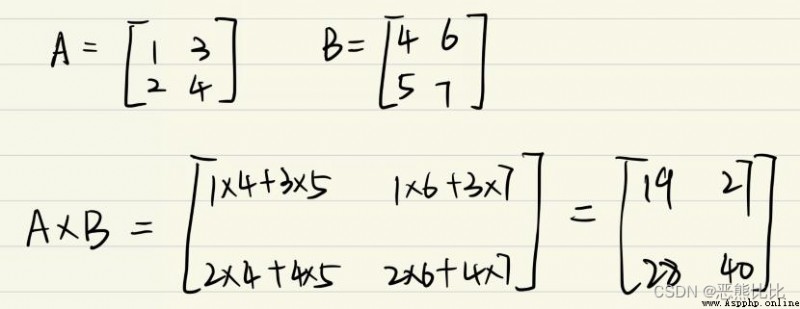 A = [1 3
2 4] B = [4 6
5 7]
A×B = [1×4+3×5 1×6+3×7
2×4+4×5 2×6+4×7] = [19 27
28 40]
CSDN @恶熊比比
www.Aspphp.online